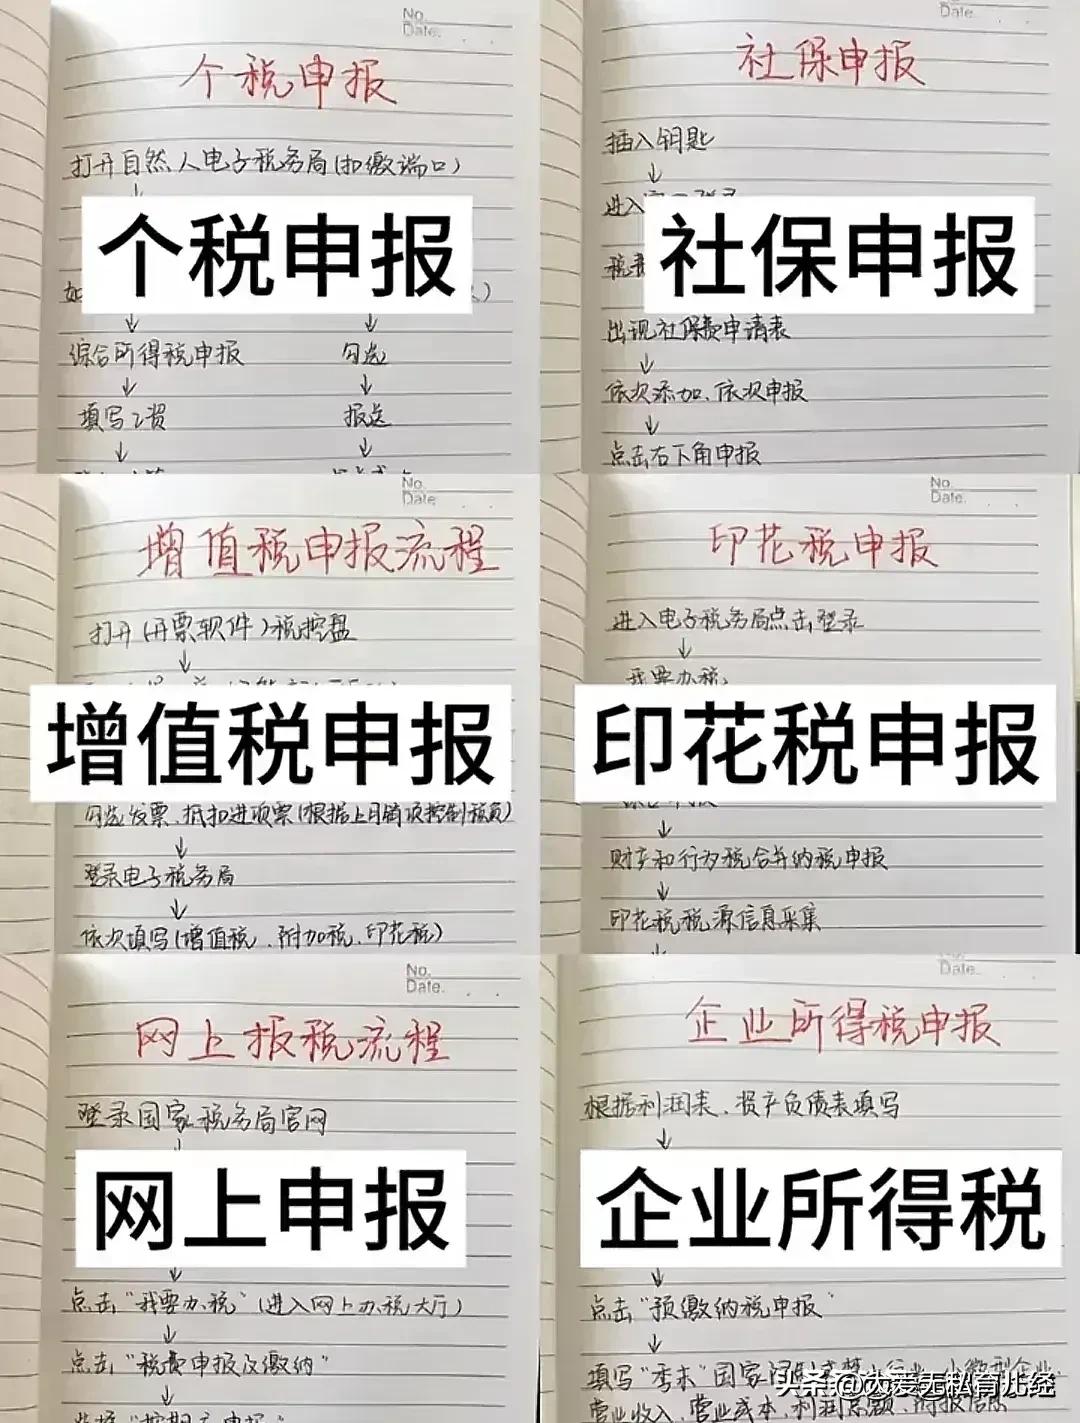 No.
Date.
个税申报
打开自然人电子税务局(扣缴端口)
个税申报
如
综合所得税申报 勾选
↓ ↓
填写工资 报送
↓ ↓
Date.
社保申报
插入钥匙
↓
进入
社保申报
税费
出现社保费申请表
↓
依次添加、依次申报
↓
点击右下角申报
No.
Date
增值税申报流程
打开(开票软件)税控盘
↓
增值税申报
勾选发票、抵扣进项票(根据上月销项控制税负)
↓
登录电子税务局
↓
依次填写(增值税、附加税、印花税)
No.
Date.
印花税申报
进入电子税务局点击登录
↓
我要办税
印花税申报
↓
财产和行为税合并纳税申报
↓
印花税税源信息采集
No.
Date.
网上报税流程
登录国家税务局官网
网上申报
↓
点击“我要办税”(进入网上办税大厅)
↓
点击“税费申报及缴纳”
↓
Date.
企业所得税申报
根据利润表、资产负债表填写
↓
企业所得税
↓
点击“预缴纳税申报”
↓
填写“季末”国家
营业收入、营业成本、利润总额、
头条@大爱无私育儿经